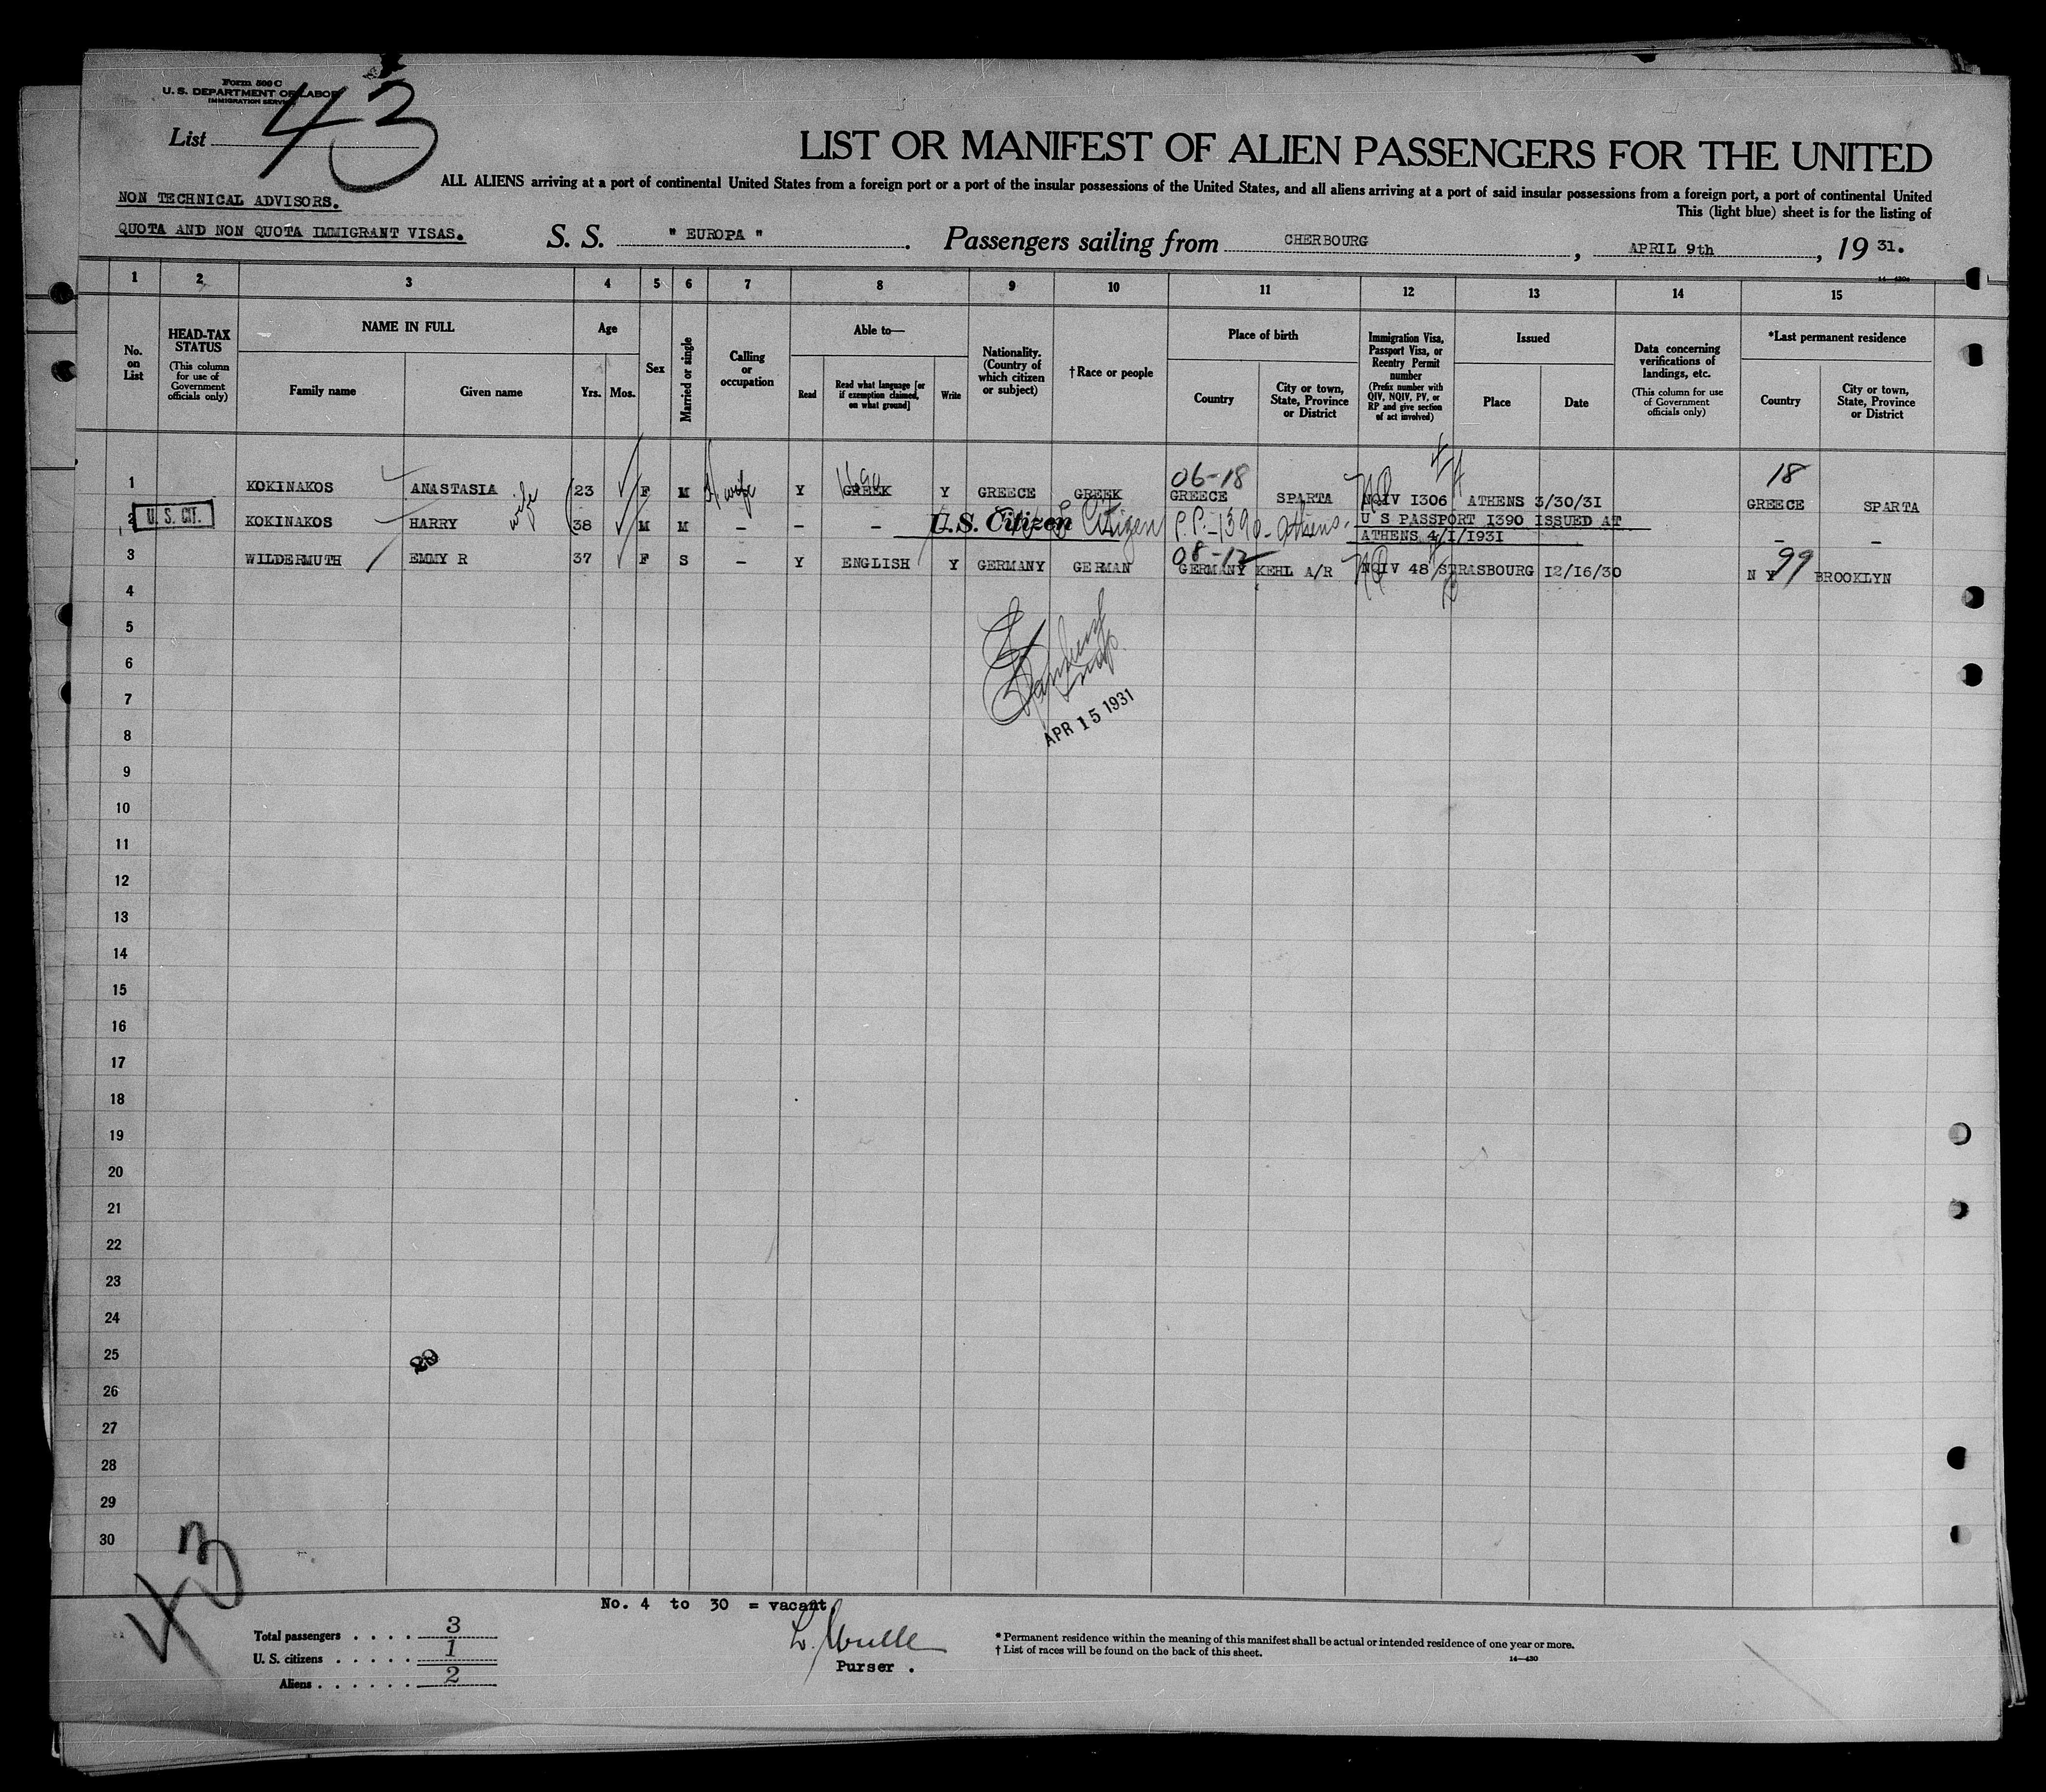 Form 500 C
U. S. DEPARTMENT OF LABOR
IMMIGRATION SERVICE
List 43
LIST OR MANIFEST OF ALIEN PASSENGERS FOR THE UNITED
ALL ALIENS arriving at a port of continental United States from a foreign port or a port of the insular possessions of the United States, and all aliens arriving at a port of said insular possessions from a foreign port, a port of continental United
This (light blue) sheet is for the listing of
NON TECHNICAL ADVISORS.
QUOTA AND NON QUOTA IMMIGRANT VISAS.
S. S. " EUROPA " . Passengers sailing from CHERBOURG , APRIL 9th , 19 31.
1 2 3 4 5 6 7 8 9 10 11 12 13 14 15
No. on List
HEAD-TAX STATUS (This column for use of Government officials only)
NAME IN FULL
Family name
Given name
Age
Yrs. Mos.
Sex
Married or single
Calling or occupation
Able to—
Read
Read what language [or if exemption claimed, on what ground]
Write
Nationality. (Country of which citizen or subject)
†Race or people
Place of birth
Country
City or town, State, Province or District
Immigration Visa, Passport Visa, or Reentry Permit number (Prefix number with QIV, NQIV, PV, or RP and give section of act involved)
Issued
Place
Date
Data concerning verifications of landings, etc. (This column for use of Government officials only)
*Last permanent residence
Country
City or town, State, Province or District
06-18 18
1 KOKINAKOS ANASTASIA wife 23 F M H wife Y GREEK Y GREECE GREEK GREECE SPARTA NQIV 1306 ATHENS 3/30/31 GREECE SPARTA
2 U. S. CIT. KOKINAKOS HARRY 38 M M – – – U.S. Citizen U S Citizen P.P.-1390-Athens. U S PASSPORT 1390 ISSUED AT
ATHENS 4/1/1931 – –
08-12 99
3 WILDERMUTH EMMY R 37 F S – Y ENGLISH Y GERMANY GERMAN GERMANY KEHL A/R NQIV 48 STRASBOURG 12/16/30 N Y BROOKLYN
4
5
6
7
APR 15 1931
8
9
10
11
12
13
14
15
16
17
18
19
20
21
22
23
24
25
29
26
27
28
29
30
43
No. 4 to 30 = vacant
Total passengers . . . . 3
U. S. citizens . . . . . 1
Aliens . . . . . . 2
Purser .
* Permanent residence within the meaning of this manifest shall be actual or intended residence of one year or more.
† List of races will be found on the back of this sheet.
14—430